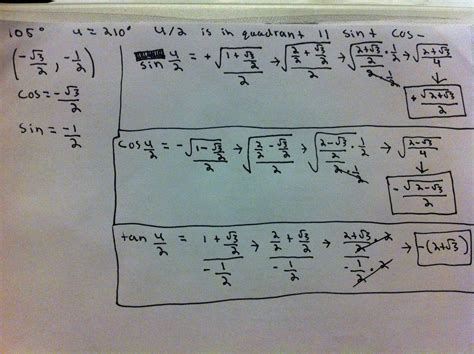 105° u = 210° u/2 is in quadrant II sin+ cos-
(-√3/2, -1/2)
cos = -√3/2
sin = -1/2
sin u/2 = +√((1+√3/2)/2) → √((2/2+√3/2)/2) → √((2+√3)/2 · 1/2) → √((2+√3)/4)
↓
+√(2+√3)/2
cos u/2 = -√((1-√3/2)/2) → √((2/2-√3/2)/2) → √((2-√3)/2 · 1/2) → √((2-√3)/4)
↓
-√(2-√3)/2
tan u/2 = (1+√3/2)/(-1/2) → (2/2+√3/2)/(-1/2) → ((2+√3)/2 · 2)/(-1/2 · 2) → -(2+√3)